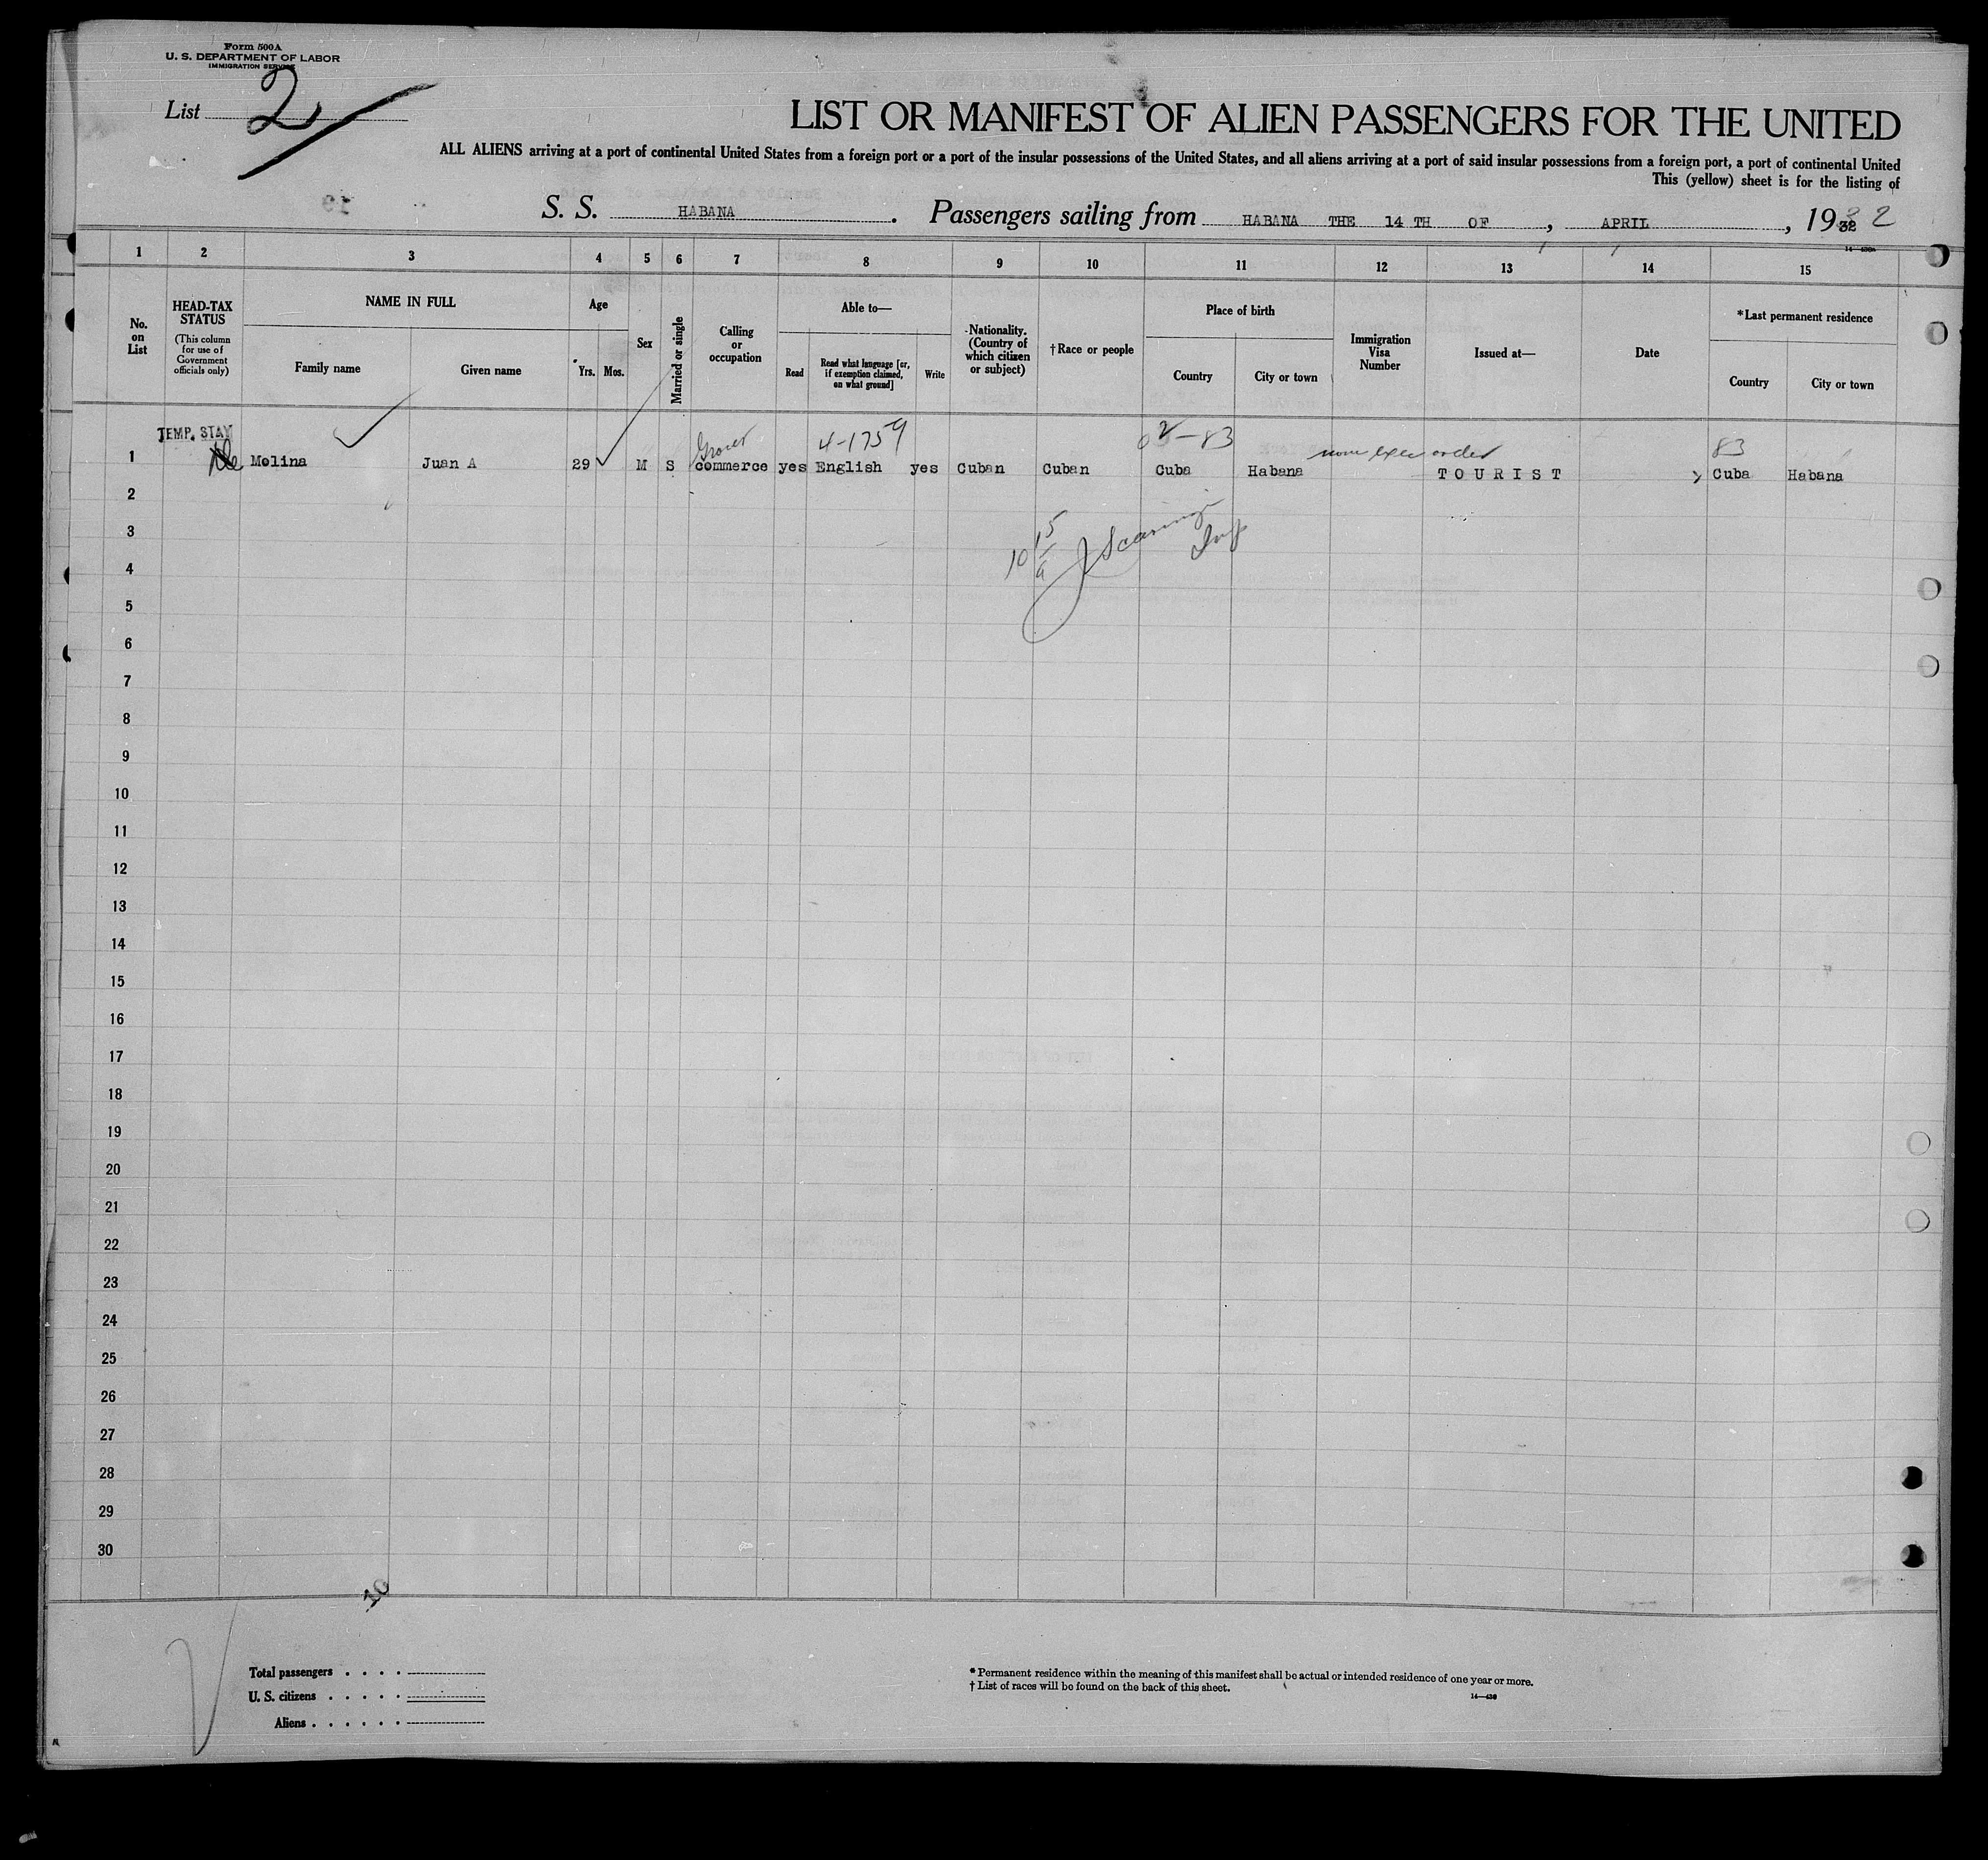 Form 500A
U. S. DEPARTMENT OF LABOR
IMMIGRATION SERVICE
List 2
LIST OR MANIFEST OF ALIEN PASSENGERS FOR THE UNITED
ALL ALIENS arriving at a port of continental United States from a foreign port or a port of the insular possessions of the United States, and all aliens arriving at a port of said insular possessions from a foreign port, a port of continental United
This (yellow) sheet is for the listing of
S. S. HABANA. Passengers sailing from HABANA THE 14 TH OF, APRIL, 1932 2
1 2 3 4 5 6 7 8 9 10 11 12 13 14 15
No. on List
HEAD-TAX STATUS
(This column for use of Government officials only)
NAME IN FULL
Family name
Given name
Age
Yrs. Mos.
Sex
Married or single
Calling or occupation
Able to—
Read
Read what language [or, if exemption claimed, on what ground]
Write
Nationality. (Country of which citizen or subject)
†Race or people
Place of birth
Country
City or town
Immigration Visa Number
Issued at—
Date
*Last permanent residence
Country
City or town
TEMP. STAY
4-1759
83
1 Molina Juan A 29 M S commerce yes English yes Cuban Cuban Cuba Habana TOURIST Cuba Habana
2
3
4
5
6
7
8
9
10
11
12
13
14
15
16
17
18
19
20
21
22
23
24
25
26
27
28
29
30
Total passengers . . . .
U. S. citizens . . . . .
Aliens . . . . . .
* Permanent residence within the meaning of this manifest shall be actual or intended residence of one year or more.
† List of races will be found on the back of this sheet.
14—430